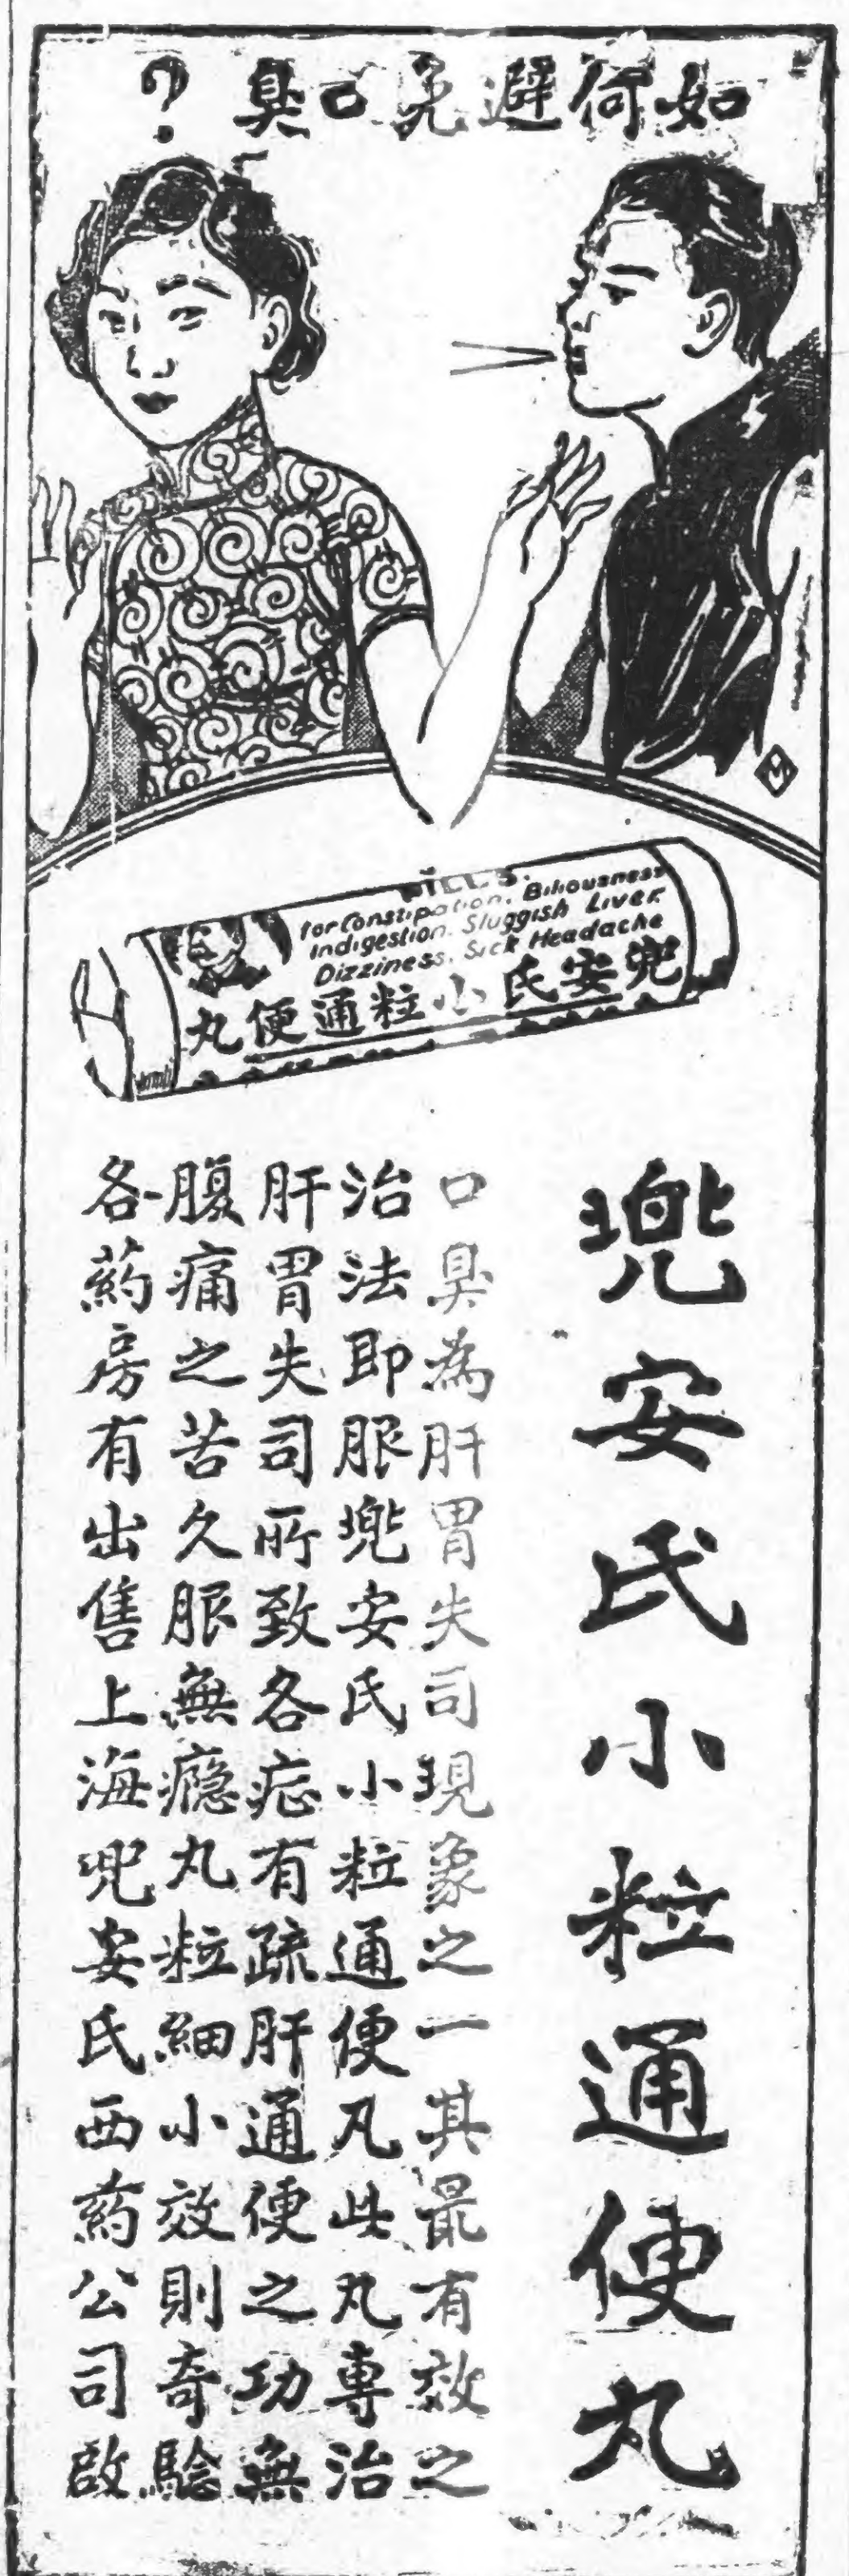 如何避免口臭？
PILLS.
for Constipation, Biliousness
Indigestion, Sluggish Liver.
Dizziness, Sick Headache
兜安氏小粒通便丸
兜安氏小粒通便丸
口臭為肝胃失司現象之一其最有效之
治法即服兜安氏小粒通便凡此丸專治
肝胃失司所致各症有疏肝通便之功無
腹痛之苦久服無癮丸粒細小效則奇驗
各葯房有出售上海兜安氏西葯公司啟